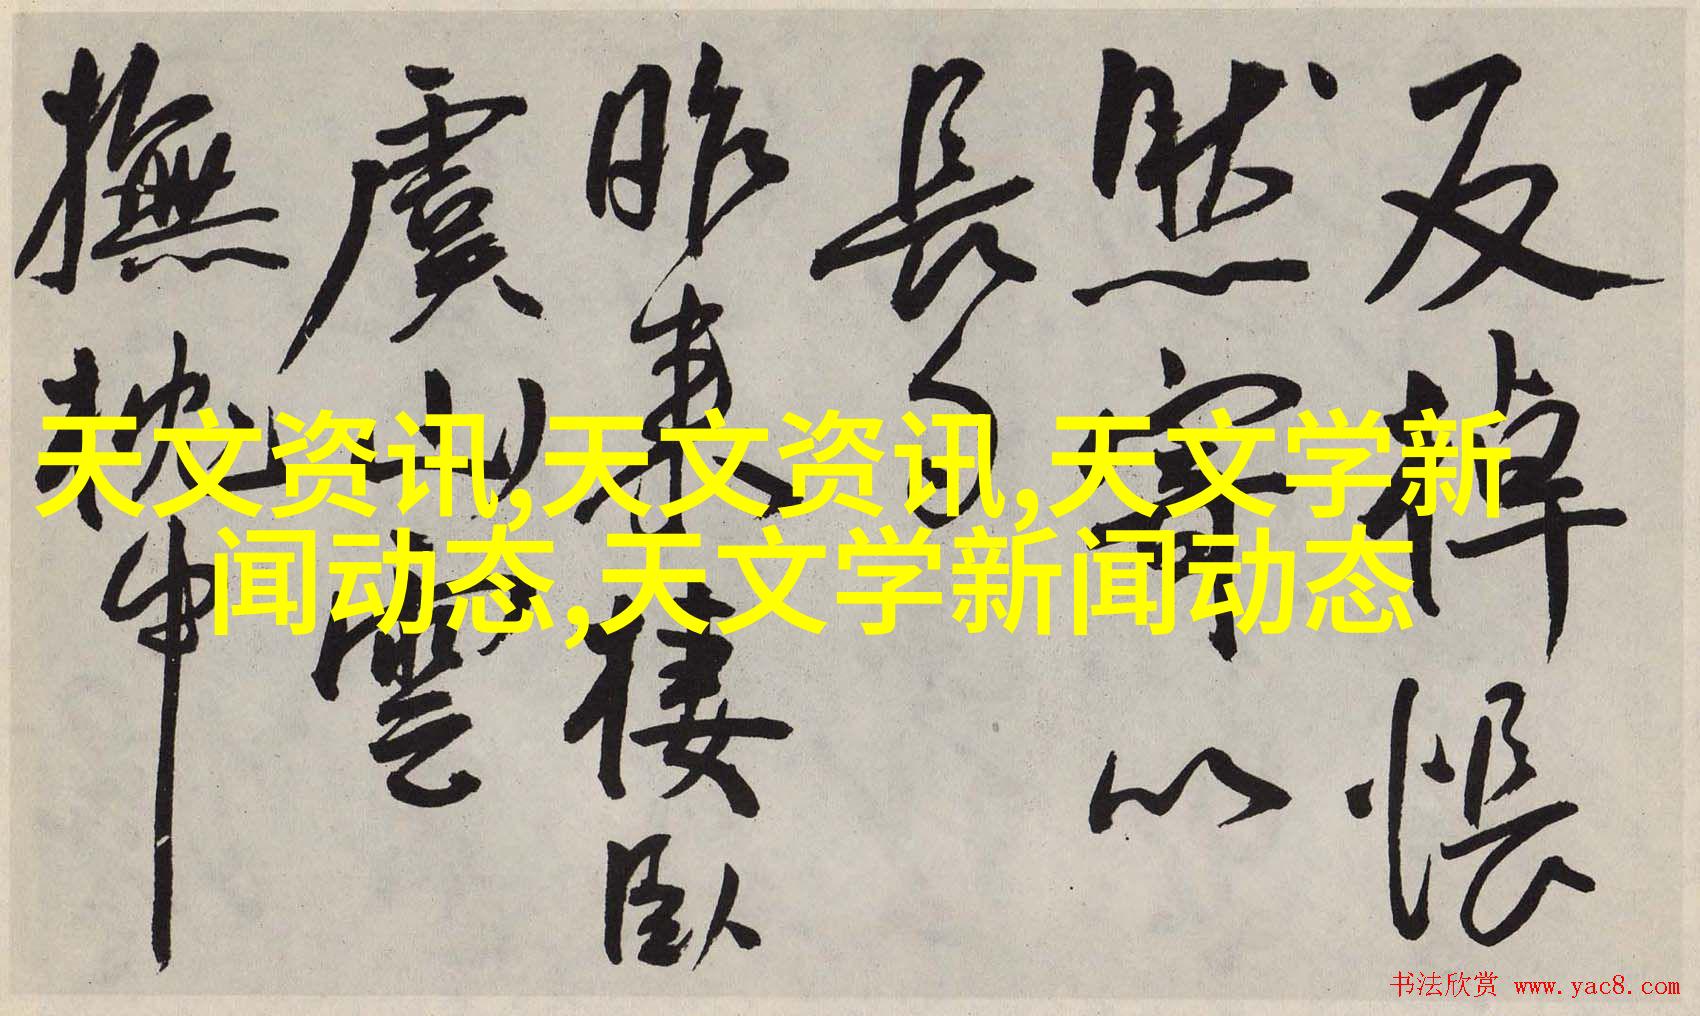 反棹悵
然寄以
長句
昨來棲臥
虞山雲
撫枕申
天文资讯,天文资讯,天文学新
闻动态,天文学新闻动态
书法欣赏 www.yac8.com